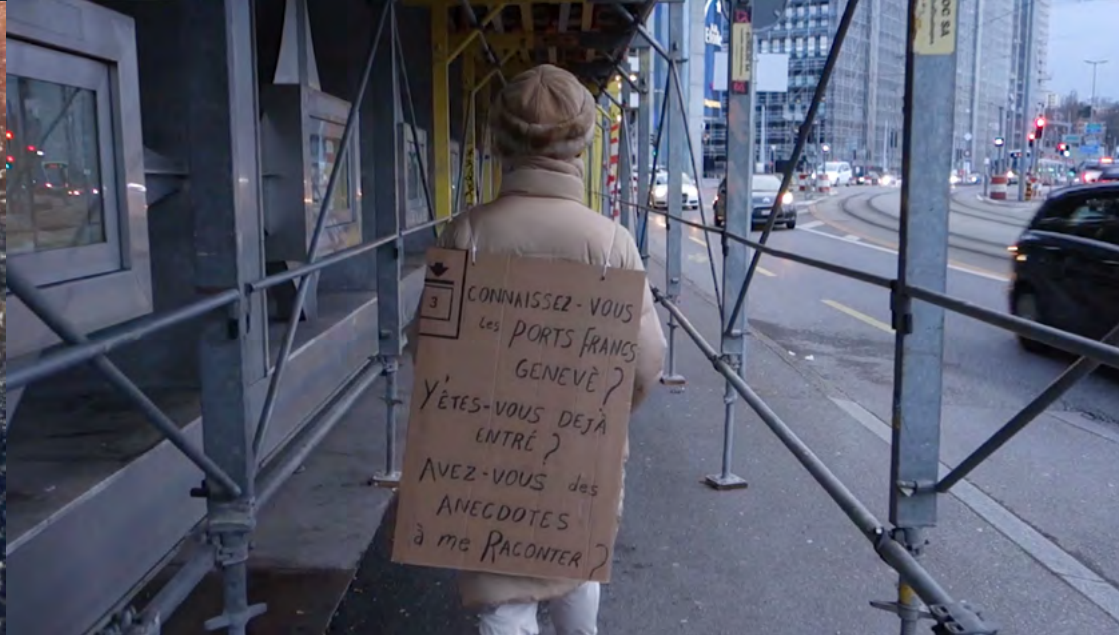 3
CONNAISSEZ-VOUS
les PORTS FRANCS
GENEVE ?
Y'ÊTES-VOUS DEJÀ
ENTRÉ ?
AVEZ-VOUS des
ANECDOTES
à me RACONTER ?